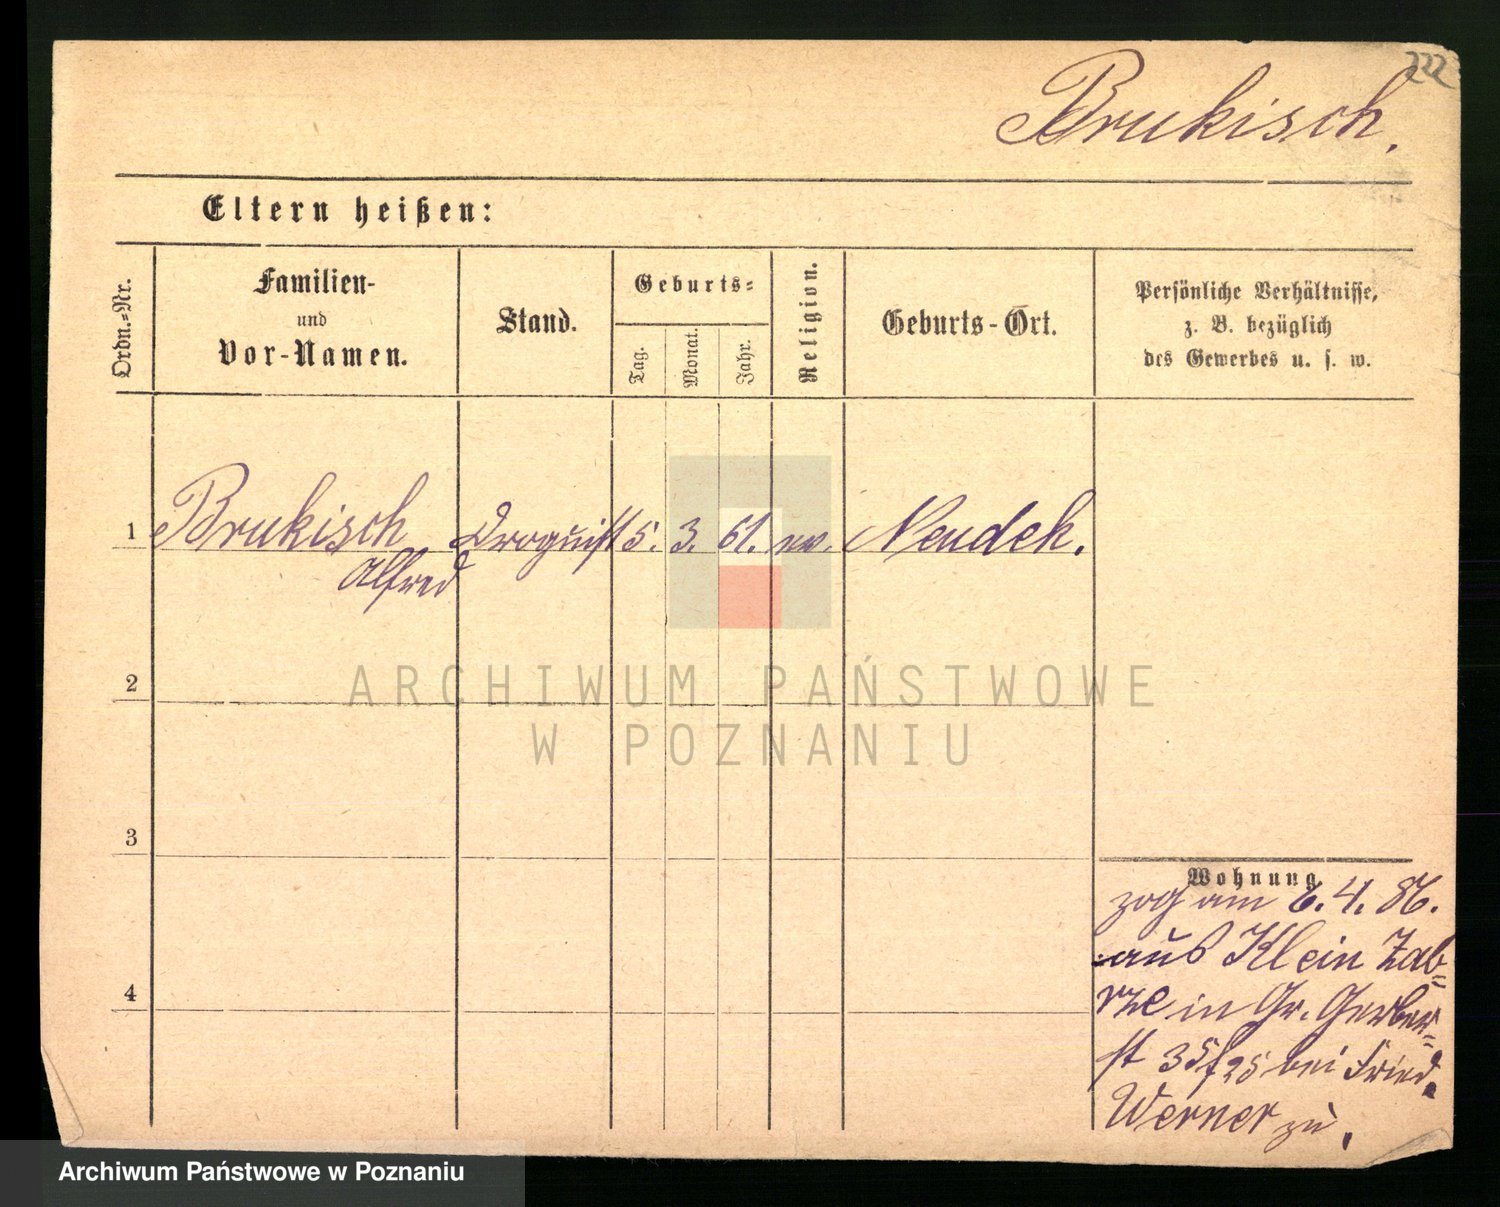 222
Brukisch.
Eltern heißen:
Ordn.-Nr.
Familien-
und
Vor-Namen.
Stand.
Geburts-
Tag.
Monat.
Jahr.
Religion.
Geburts-Ort.
Persönliche Verhältnisse,
z. B. bezüglich
des Gewerbes u. s. w.
1 Brukisch Droguist 5. 3. 61. ev. Neudek.
Alfred
2
ARCHIWUM PAŃSTWOWE
W POZNANIU
3
Wohnung
zog am 6. 4. 86.
aus Klein Zab-
rze in Gr. Gerber-
st 35/25 bei Fried.
Werner zu.
4
Archiwum Państwowe w Poznaniu